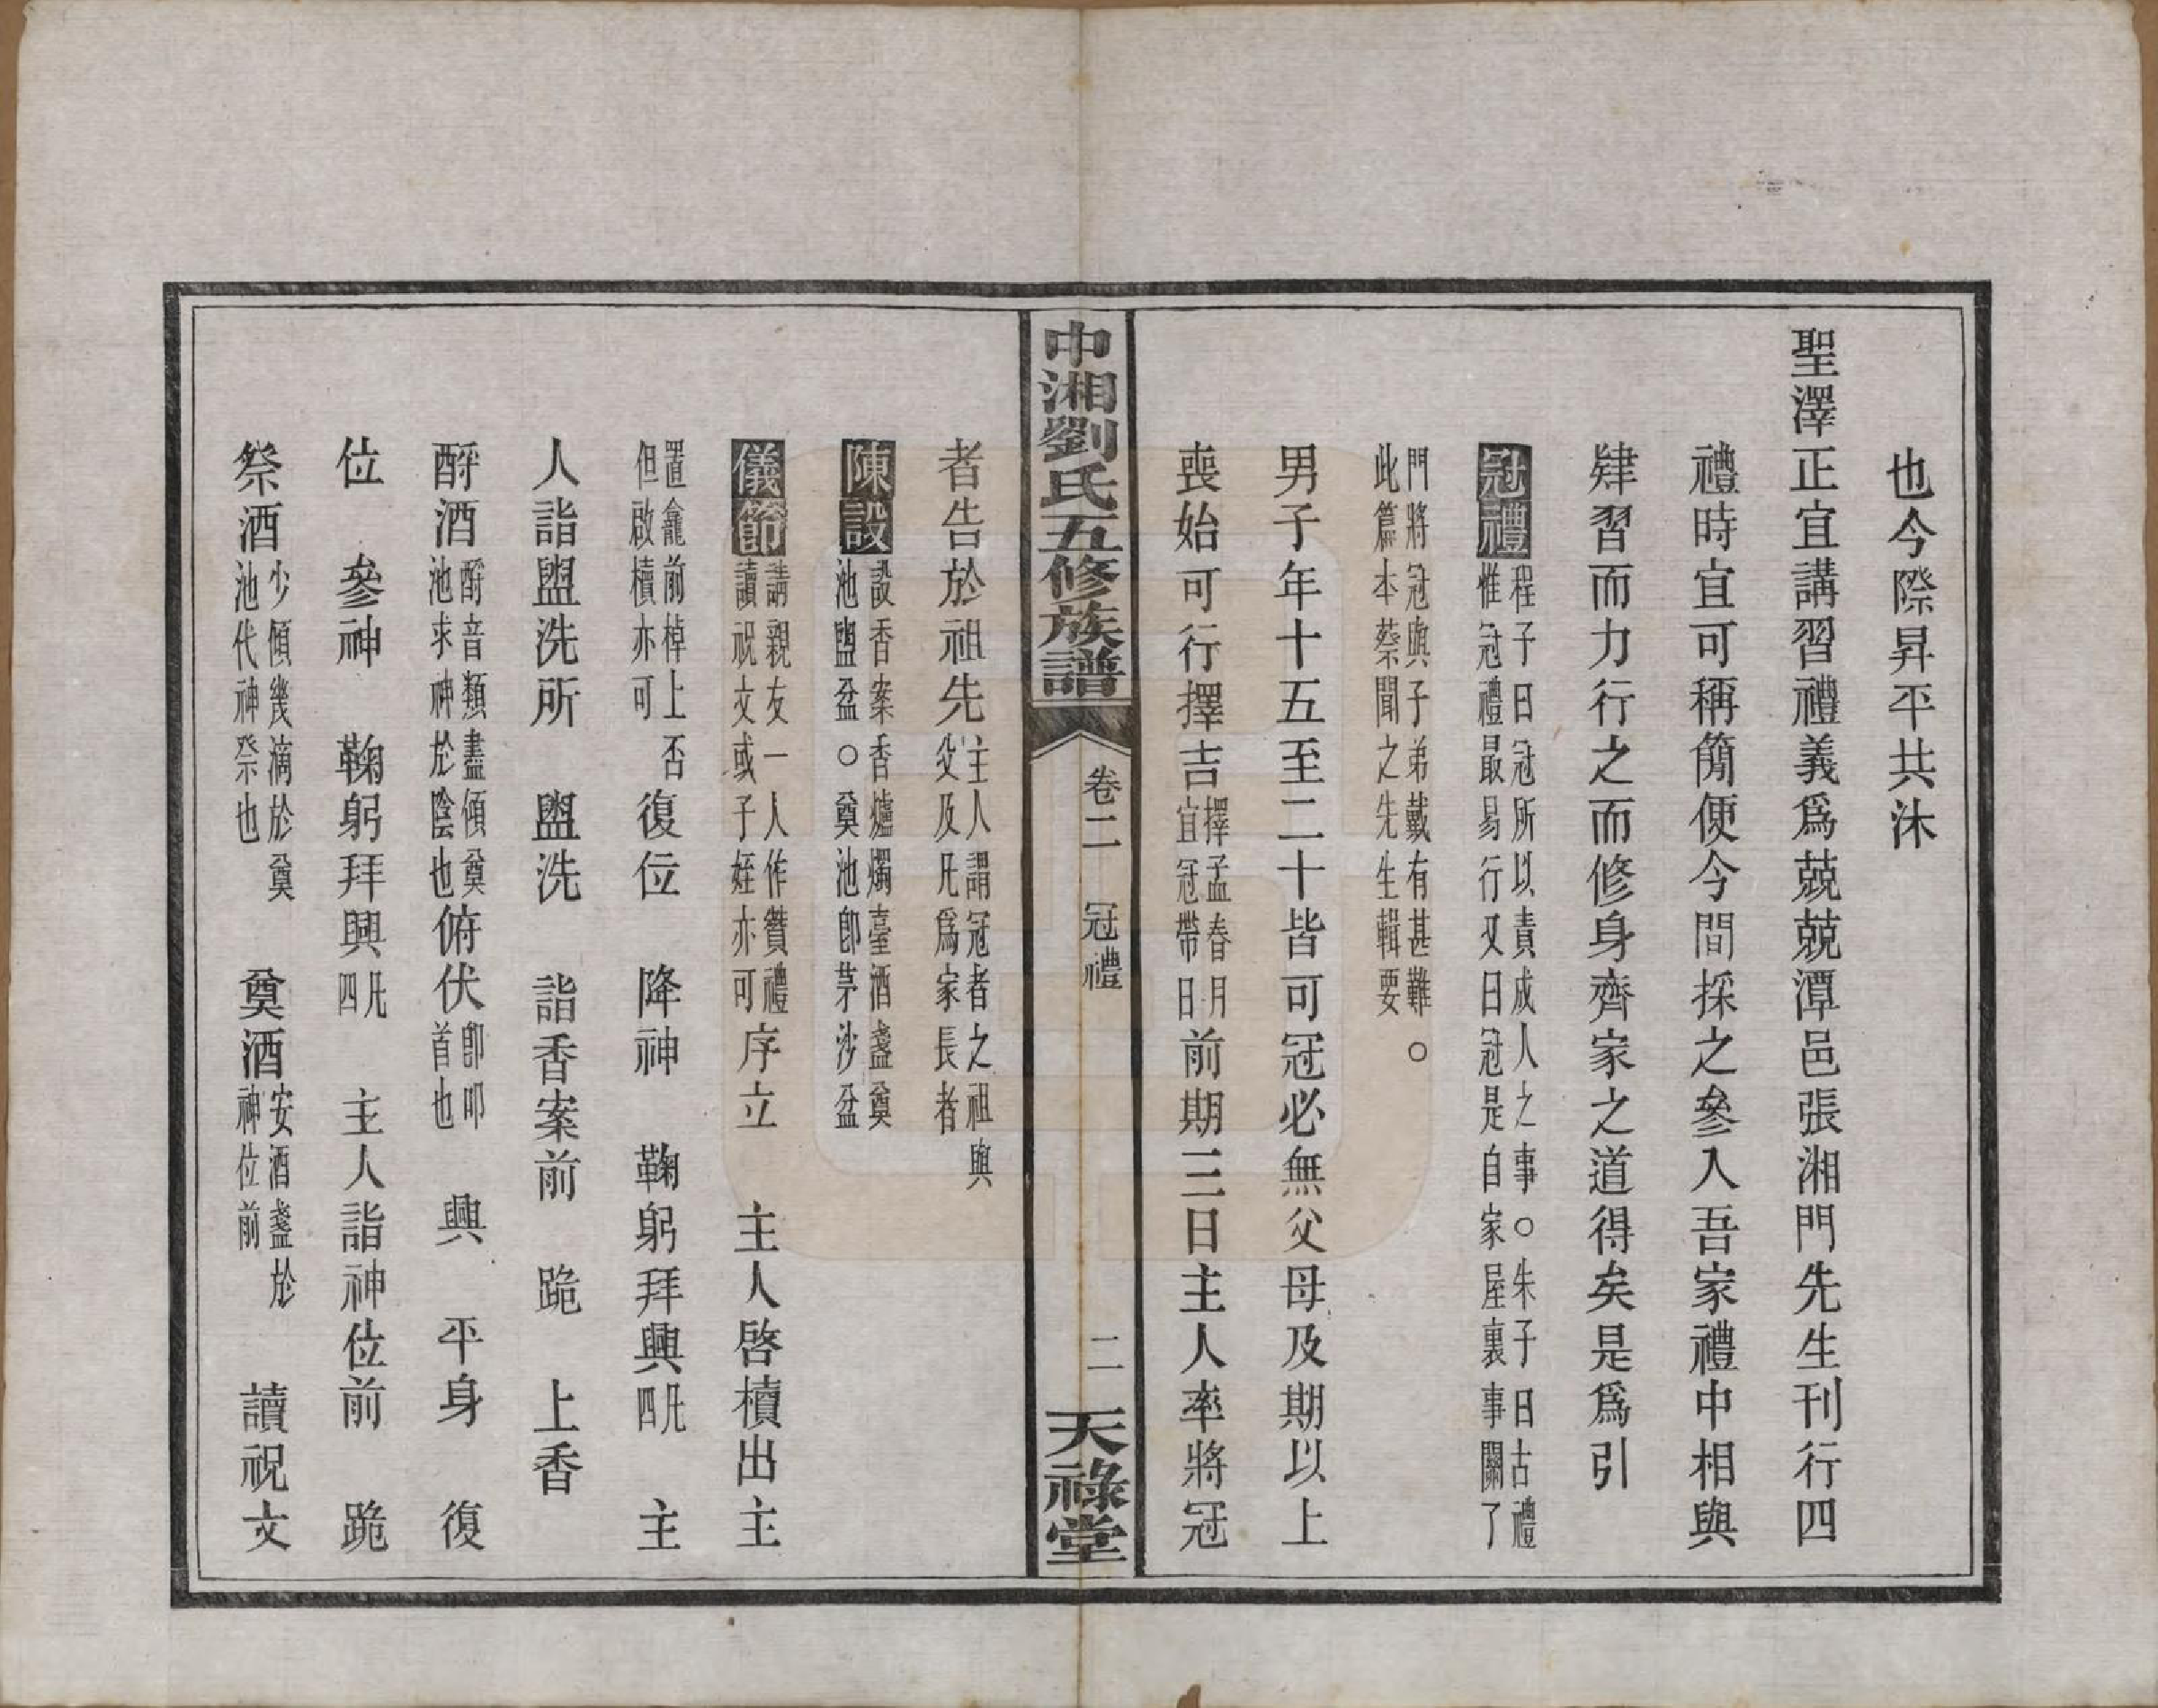 也今際昇平共沐
聖澤正宜講習禮義爲兢兢潭邑張湘門先生刊行四
禮時宜可稱簡便今間採之參入吾家禮中相與
肄習而力行之而修身齊家之道得矣是爲引
冠禮 程子曰冠所以責成人之事○朱子曰古禮
惟冠禮最易行又曰冠是自家屋裏事關了
門將冠與子弟戴有甚難○
此篇本蔡聞之先生輯要
男子年十五至二十皆可冠必無父母及期以上
喪始可行擇吉 擇孟春月
宜冠帶日 前期三日主人率將冠
中湘劉氏五修族譜 卷二 冠禮 二 天祿堂
者告於祖先 主人謂冠者之祖與
父及凡爲家長者
陳設 設香案香爐燭臺酒盞奠
池盥盆○奠池卽茅沙盆
儀節 請親友一人作贊禮
讀祝文或子姪亦可 序立 主人啓櫝出主
置龕前棹上否
但啟櫝亦可 復位 降神 鞠躬拜興 凡
四 主
人詣盥洗所 盥洗 詣香案前 跪 上香
酹酒 酹音類盡傾奠
池求神於陰也 俯伏 卽叩
首也 興 平身 復
位 參神 鞠躬拜興 凡
四 主人詣神位前 跪
祭酒 少傾幾滴於奠
池代神祭也 奠酒 安酒盞於
神位前 讀祝文